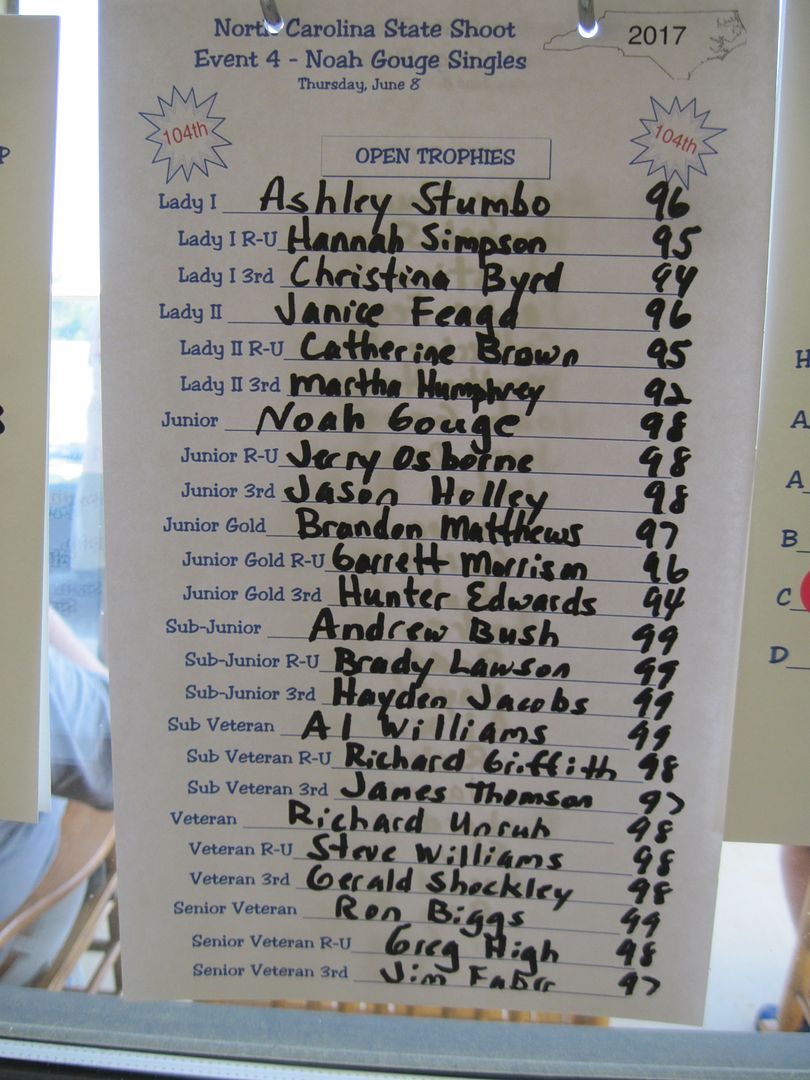 North Carolina State Shoot
2017
Event 4 - Noah Gouge Singles
Thursday, June 8
104th
104th
OPEN TROPHIES
Lady I Ashley Stumbo 96
Lady I R-U Hannah Simpson 95
Lady I 3rd Christina Byrd 94
Lady II Janice Feagd 96
Lady II R-U Catherine Brown 95
Lady II 3rd Martha Humphrey 92
Junior Noah Gouge 98
Junior R-U Jerry Osborne 98
Junior 3rd Jason Holley 98
Junior Gold Brandon Matthews 97
Junior Gold R-U Garrett Morrison 96
Junior Gold 3rd Hunter Edwards 94
Sub-Junior Andrew Bush 99
Sub-Junior R-U Brady Lawson 99
Sub-Junior 3rd Hayden Jacobs 99
Sub Veteran Al Williams 99
Sub Veteran R-U Richard Griffith 98
Sub Veteran 3rd James Thomson 97
Veteran Richard Unruh 98
Veteran R-U Steve Williams 98
Veteran 3rd Gerald Shockley 98
Senior Veteran Ron Biggs 99
Senior Veteran R-U Greg High 98
Senior Veteran 3rd Jim Faber 97
P
H
A
A
B
C
D